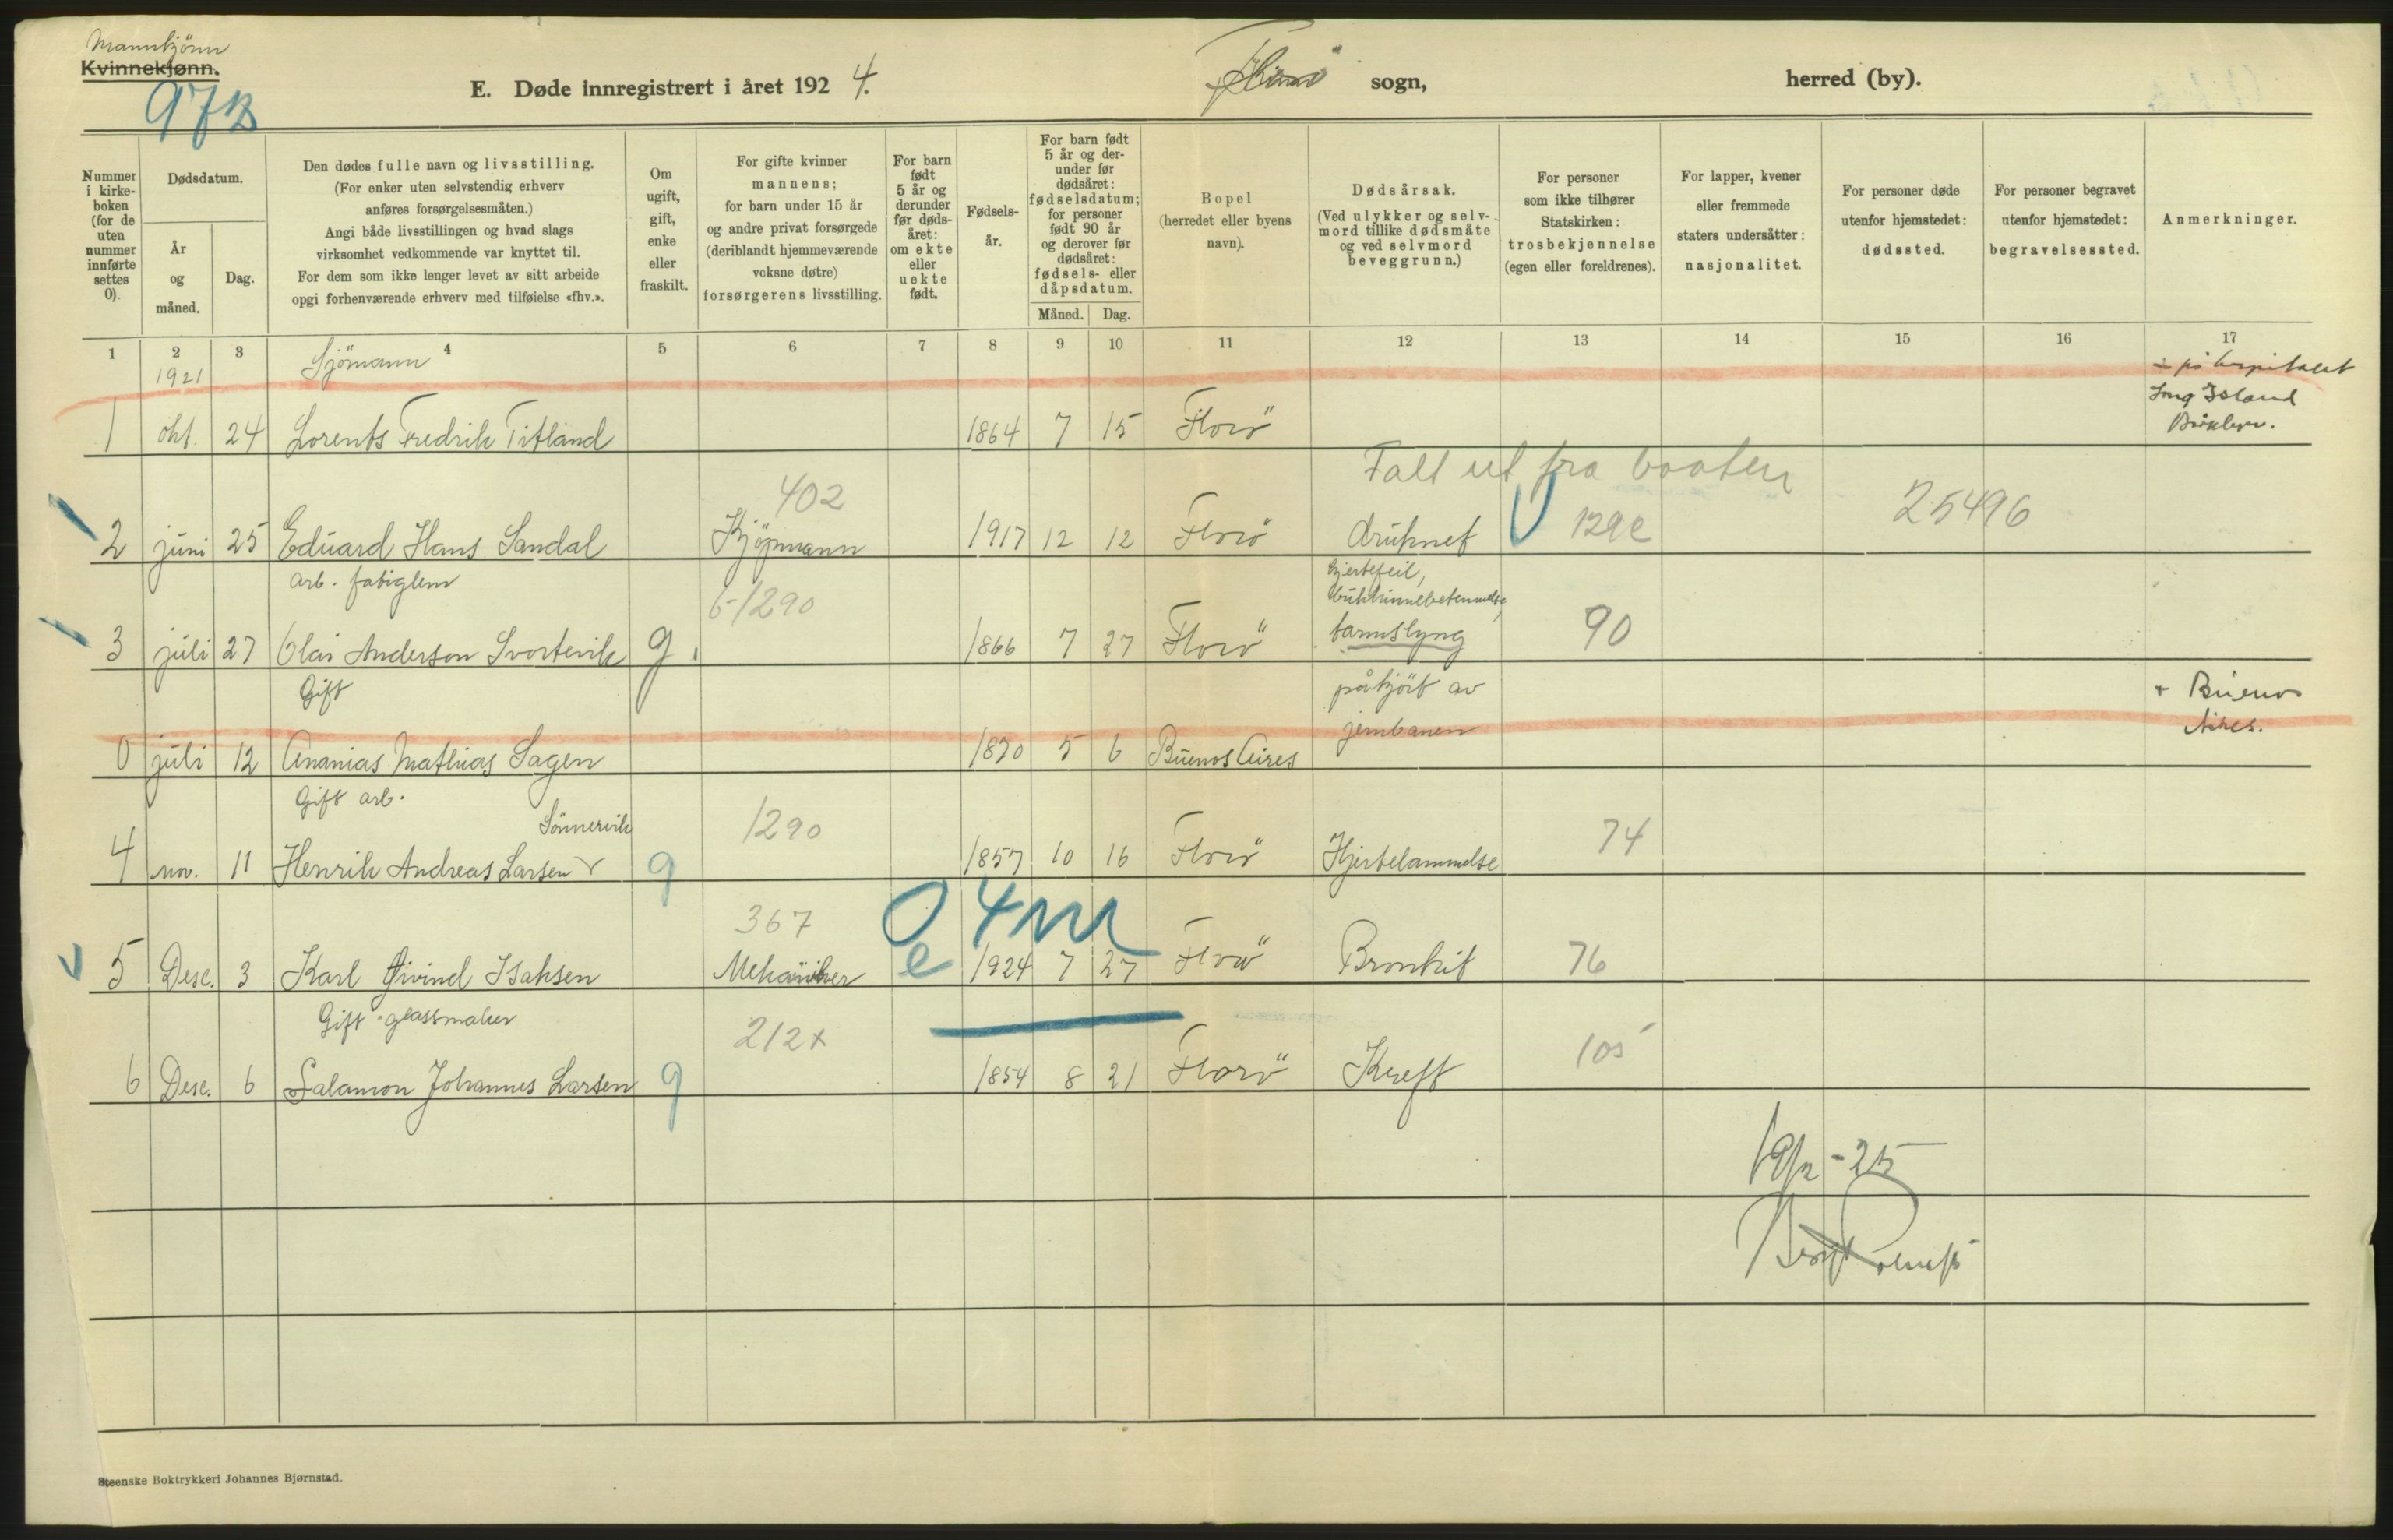 Mannkjönn
Kvinnekjønn.
97B
E. Døde innregistrert i året 1924.
Florö sogn,
herred (by).
Nummer i kirke-boken (for de uten nummer innførte settes 0).
Dødsdatum.
År og måned.
Dag.
Den dødes fulle navn og livsstilling.
(For enker uten selvstendig erhverv
anføres forsørgelsesmåten.)
Angi både livsstillingen og hvad slags
virksomhet vedkommende var knyttet til.
For dem som ikke lenger levet av sitt arbeide
opgi forhenværende erhverv med tilføielse «fhv.».
Om ugift, gift, enke eller fraskilt.
For gifte kvinner
mannens;
for barn under 15 år
og andre privat forsørgede
(deriblandt hjemmeværende
voksne døtre)
forsørgerens livsstilling.
For barn født 5 år og derunder før døds-året: om ekte eller uekte født.
Fødsels-år.
For barn født
5 år og der-
under før
dødsåret:
fødselsdatum;
for personer
født 90 år
og derover før
dødsåret:
fødsels- eller
dåpsdatum.
Måned. Dag.
Bopel
(herredet eller byens
navn).
Dødsårsak.
(Ved ulykker og selv-
mord tillike dødsmåte
og ved selvmord
beveggrunn.)
For personer
som ikke tilhører
Statskirken:
trosbekjennelse
(egen eller foreldrenes).
For lapper, kvener
eller fremmede
staters undersåtter:
nasjonalitet.
For personer døde
utenfor hjemstedet:
dødssted.
For personer begravet
utenfor hjemstedet:
begravelsessted.
Anmerkninger.
1 2 3 4 5 6 7 8 9 10 11 12 13 14 15 16 17
1921 Sjömann
+ på hospitalet
Long Island
1 okt. 24 Lorents Fredrik Titland 1864 7 15 Florö
Falt ut fra baaten
402 25496
2 juni 25 Eduard Hans Sandal Kjöpmann 1917 12 12 Florö druknet 129e
arb. fatiglem 6-1290 hjertefeil,
bukhinnebetennelse,
3 juli 27 Olai Anderson Svortevik g. 1866 7 27 Florö tarmslyng 90
Gift påkjört av + Buenos
jernbanen Aires.
0 juli 12 Ananias Mathias Sagen 1870 5 6 Buenos Aires
Gift arb.
Sönnervik 1290
4 nov. 11 Henrik Andreas Larsen g 1857 10 16 Florö Hjertelammelse 74
367 0 4m
5 Desc. 3 Karl Øivind Isaksen Mekaniker e 1924 7 27 Florö Bronkit 76
Gift glassmaker 212x
6 Desc. 6 Salamon Johannes Larsen g 1854 8 21 Florö Kreft 105
19/2-25
Steenske Boktrykkeri Johannes Bjørnstad.